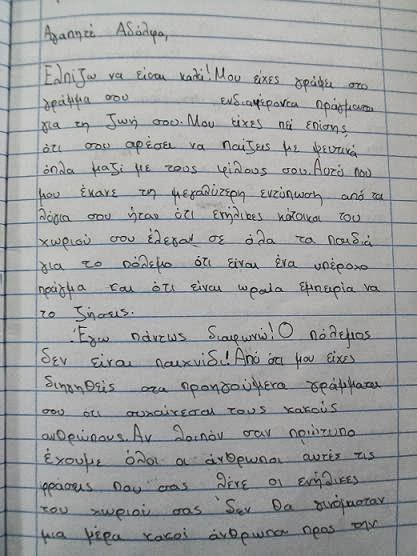 Αγαπητέ Αδόλφο,
Ελπίζω να είσαι καλά! Μου είχες γράψει στο
γράμμα σου ενδιαφέροντα πράγματα
για τη ζωή σου. Μου είχες πεί επίσης,
ότι σου αρέσει να παίζεις με ψευτικά
όπλα μαζί με τους φίλους σου. Αυτό που
μου έκανε τη μεγαλύτερη εντύπωση από τα
λόγια σου ήταν ότι ενήλικες κάτοικοι του
χωριού σου έλεγαν σε όλα τα παιδιά
για το πόλεμο ότι είναι ένα υπέροχο
πράγμα και ότι είναι ωραία εμπειρία να
το ζήσεις.
Εγώ πάντως διαφωνώ! Ο πόλεμος
δεν είναι παιχνίδι! Από ότι μου είχες
διηγηθείς στα προηγούμενα γράμματα
σου ότι σιχαίνεσαι τους κακούς
ανθρώπους. Αν λοιπόν σαν πρώτυπο
έχουμε όλοι οι άνθρωποι αυτές τις
φράσεις που σας λένε οι ενήλικες
του χωριού σας δεν θα γινόμασταν
μια μέρα κακοί άνθρωποι προς την